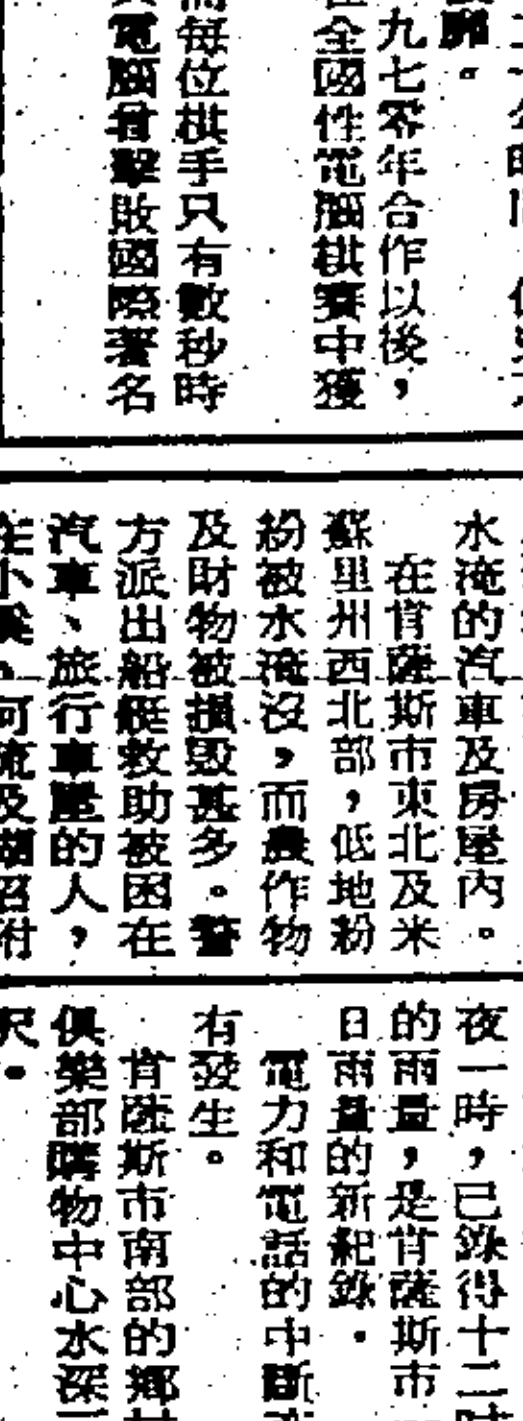 廓。
九七零年合作以後，
全國性電腦棋賽中獲
每位棋手只有數秒時
電腦曾擊敗國際著名
水淹的汽車及房屋內。
在肯薩斯市東北及米
蘇里州西北部，低地粉
紛被水淹沒，而農作物
及財物被損毀甚多。警
方派出船艇救助被困在
汽車、旅行車屋的人，
在小溪、河流及湖沼附
夜一時，已錄得十二吋
的雨量，是肯薩斯市
日雨量的新紀錄。
電力和電話的中斷
有發生。
肯薩斯市南部的鄉村
俱樂部購物中心水深
呎。